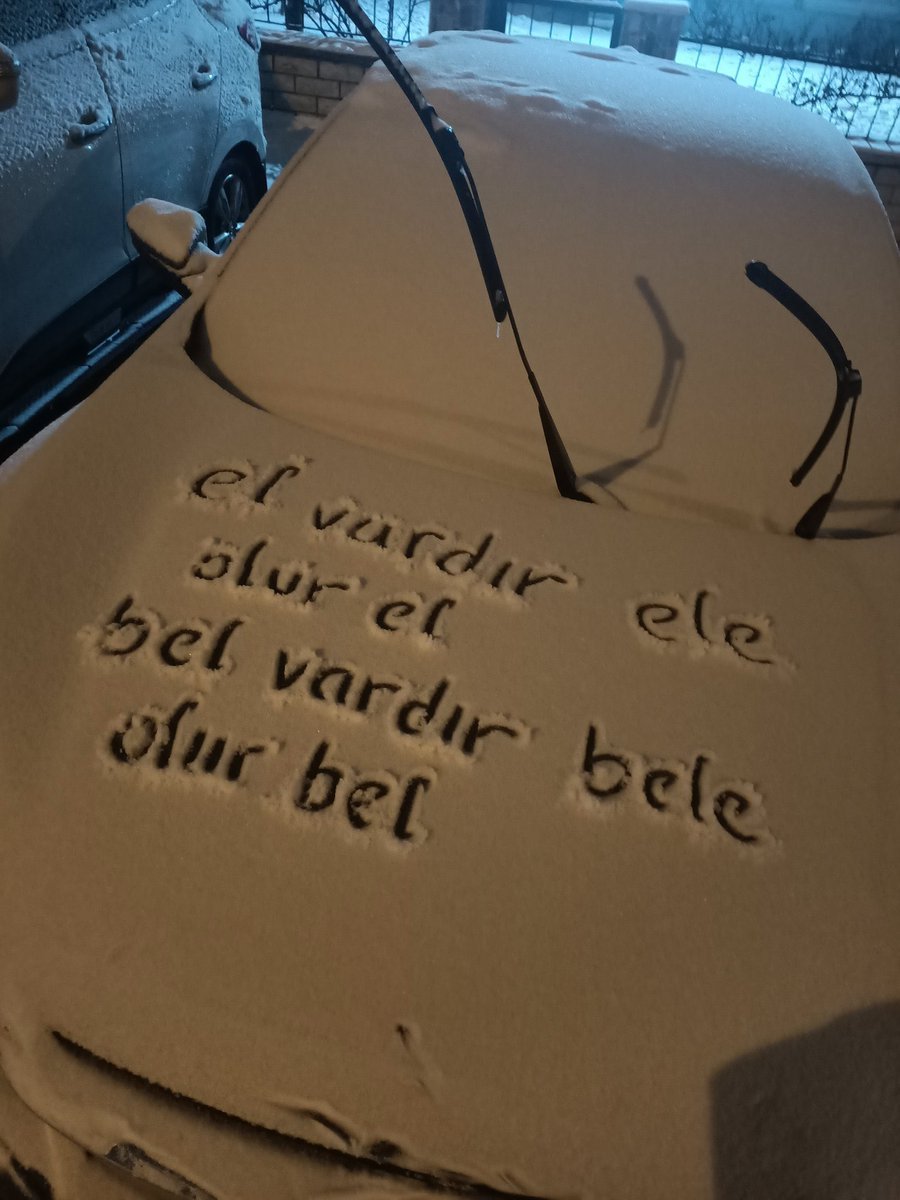 el vardır ele
olur el
bel vardır bele
olur bel